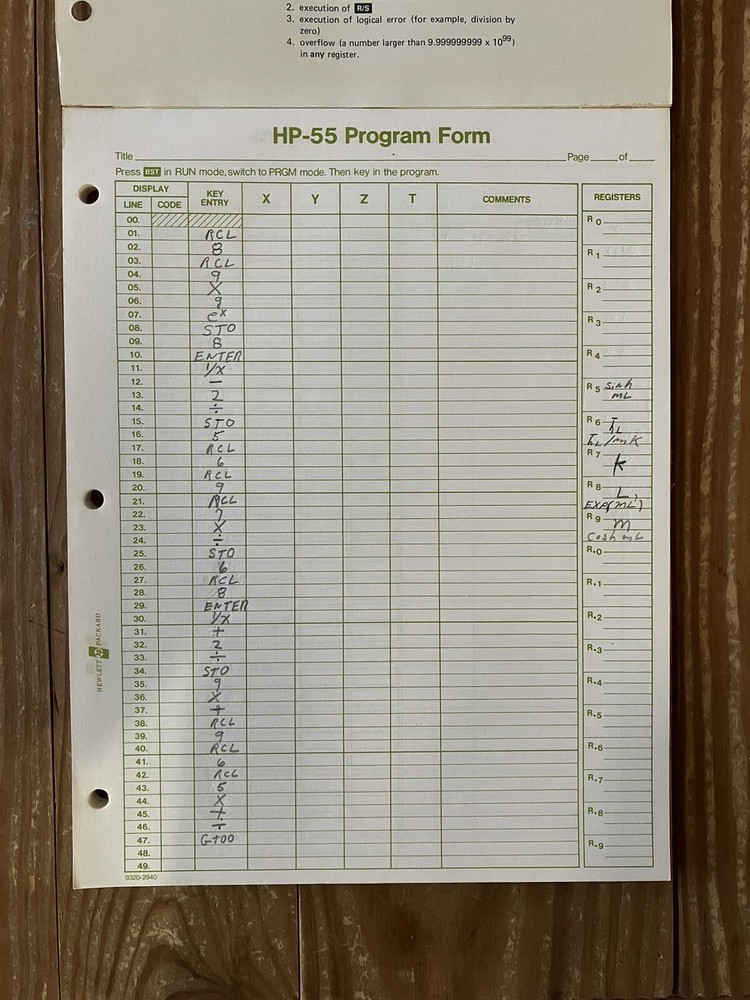 2. execution of R/S
3. execution of logical error (for example, division by
zero)
4. overflow (a number larger than 9.999999999 x 10⁹⁹)
in any register.
HP-55 Program Form
Title Page of
Press BST in RUN mode, switch to PRGM mode. Then key in the program.
DISPLAY KEY ENTRY X Y Z T COMMENTS REGISTERS
LINE CODE
00. R 0
01. RCL
02. 8
03. RCL R 1
04. 9
05. X R 2
06. g
07. eˣ
08. STO R 3
09. 8
10. ENTER R 4
11. 1/X
12. –
13. 2 R 5 sinh
14. ÷ mL
15. STO R 6
16. 5
17. RCL R 7
18. 6 k
19. RCL
20. 9 R 8 L,
21. RCL EXP(mL)
22. 7 R 9 m
23. X
24. ÷ Cosh mL
25. STO R.0
26. 6
27. RCL R.1
28. 8
29. ENTER
30. 1/X R.2
31. +
32. 2 R.3
33. ÷
34. STO
35. 9 R.4
36. X
37. + R.5
38. RCL
39. 9
40. RCL R.6
41. 6
42. RCL R.7
43. 5
44. X
45. + R.8
46. ÷
47. GTO0 R.9
48.
49.
9320-2940
HEWLETT hp PACKARD